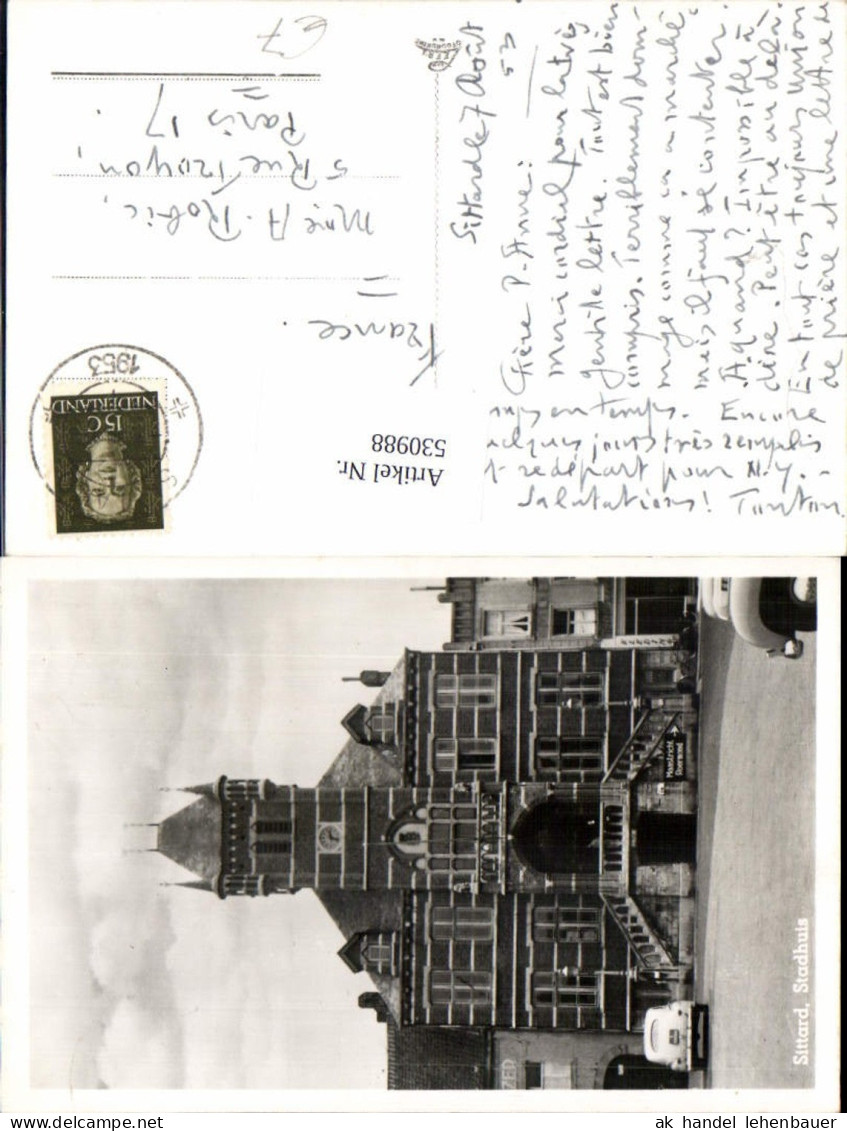 Sittard le 7 Août
53
Chère P. Anne:
Merci cordial pour la très
gentille lettre. Tout est bien
compris. Terriblement dom-
mage comme ça a marché
mais il faut se contenter.
A quand? Impossible à
dire. Peut être au delà.
En tout cas toujours union
de prière et une lettre de
mps en temps. Encore
quelques jours très remplis
et redépart pour N.Y. -
Salutations! Tonton
Mme A. Robic,
5 Rue Troyon,
Paris 17.
France.
1953
NEDERLAND
15 C
Artikel Nr.
530988
Maastricht
Roermond
ZED
Sittard, Stadhuis
ak handel lehenbauer